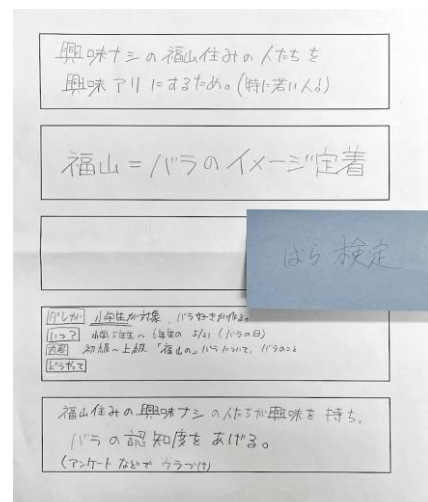 興味ナシの福山住みの人たちを
興味アリにするため。(特に若い人!)
福山=バラのイメージ定着
ばら検定
だれが 小学生が対象、バラ好きが作る。
いつ? 小学5年生〜6年生の 5/21(バラの日)
内容 初級〜上級「福山の」バラについて、バラのこと
どうやって
福山住みの興味ナシの人たちが興味を持ち、
バラの認知度をあげる。
(アンケートなどでウラづけ)